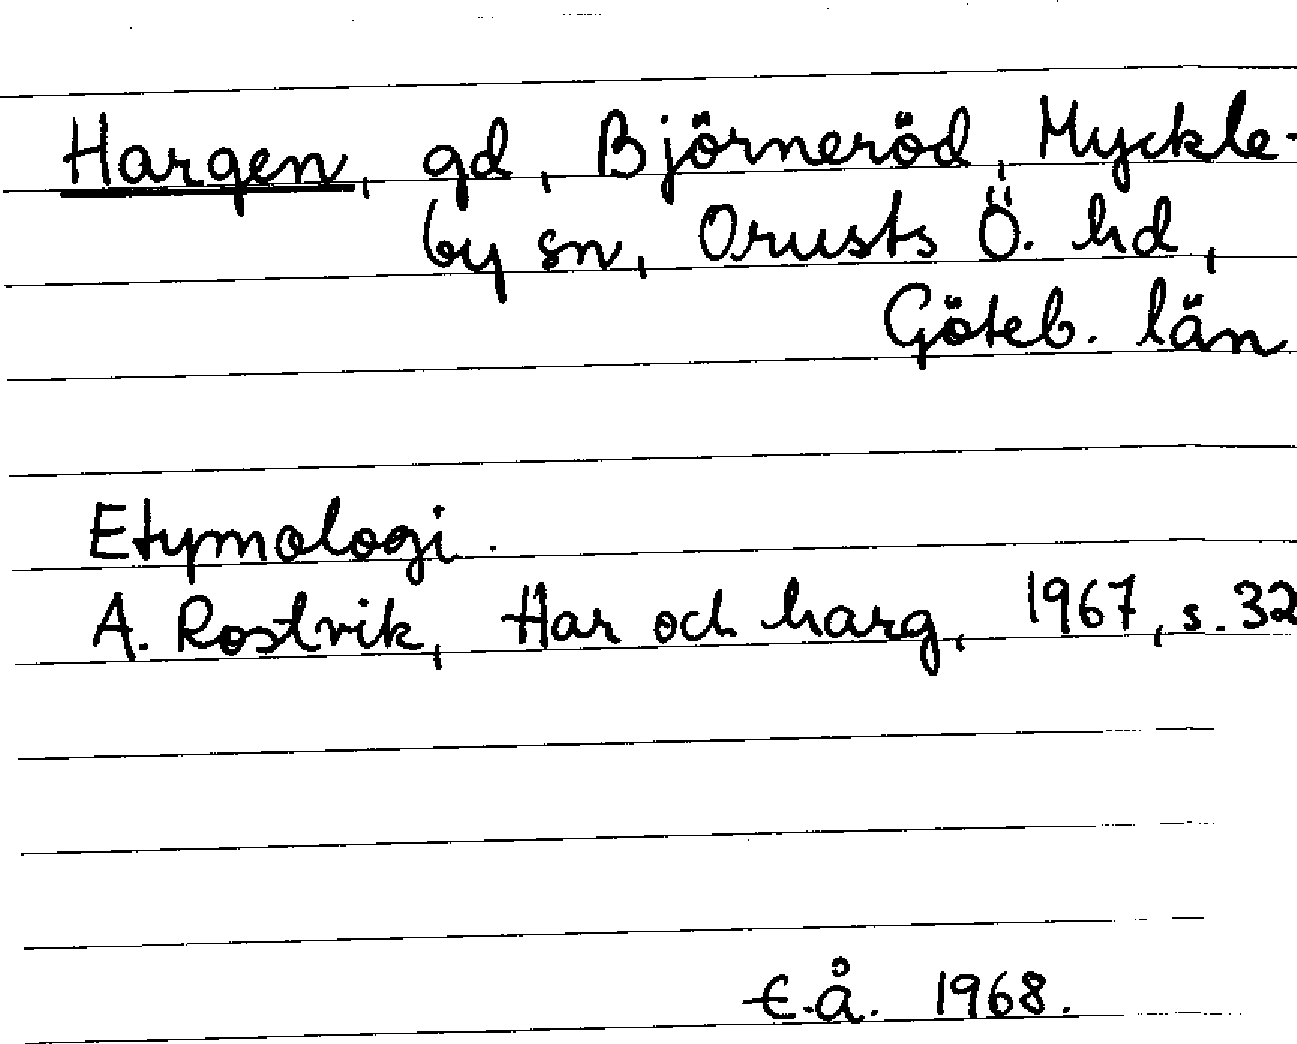 Hargen, gd, Björneröd, Myckle-
by sn, Orusts Ö. hd,
Göteb. län
Etymologi.
A. Rostvik, Har och harg, 1967, s. 32
E.Å. 1968.